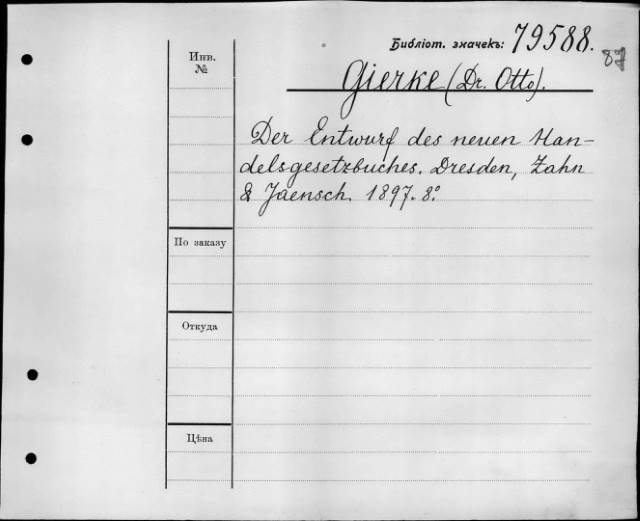 Библіот. значекъ: 79588.
Инв. №
Gierke (Dr. Otto).
Der Entwurf des neuen Han-
delsgesetzbuches. Dresden, Zahn
& Jaensch. 1897. 8.°
По заказу
Откуда
Цѣна